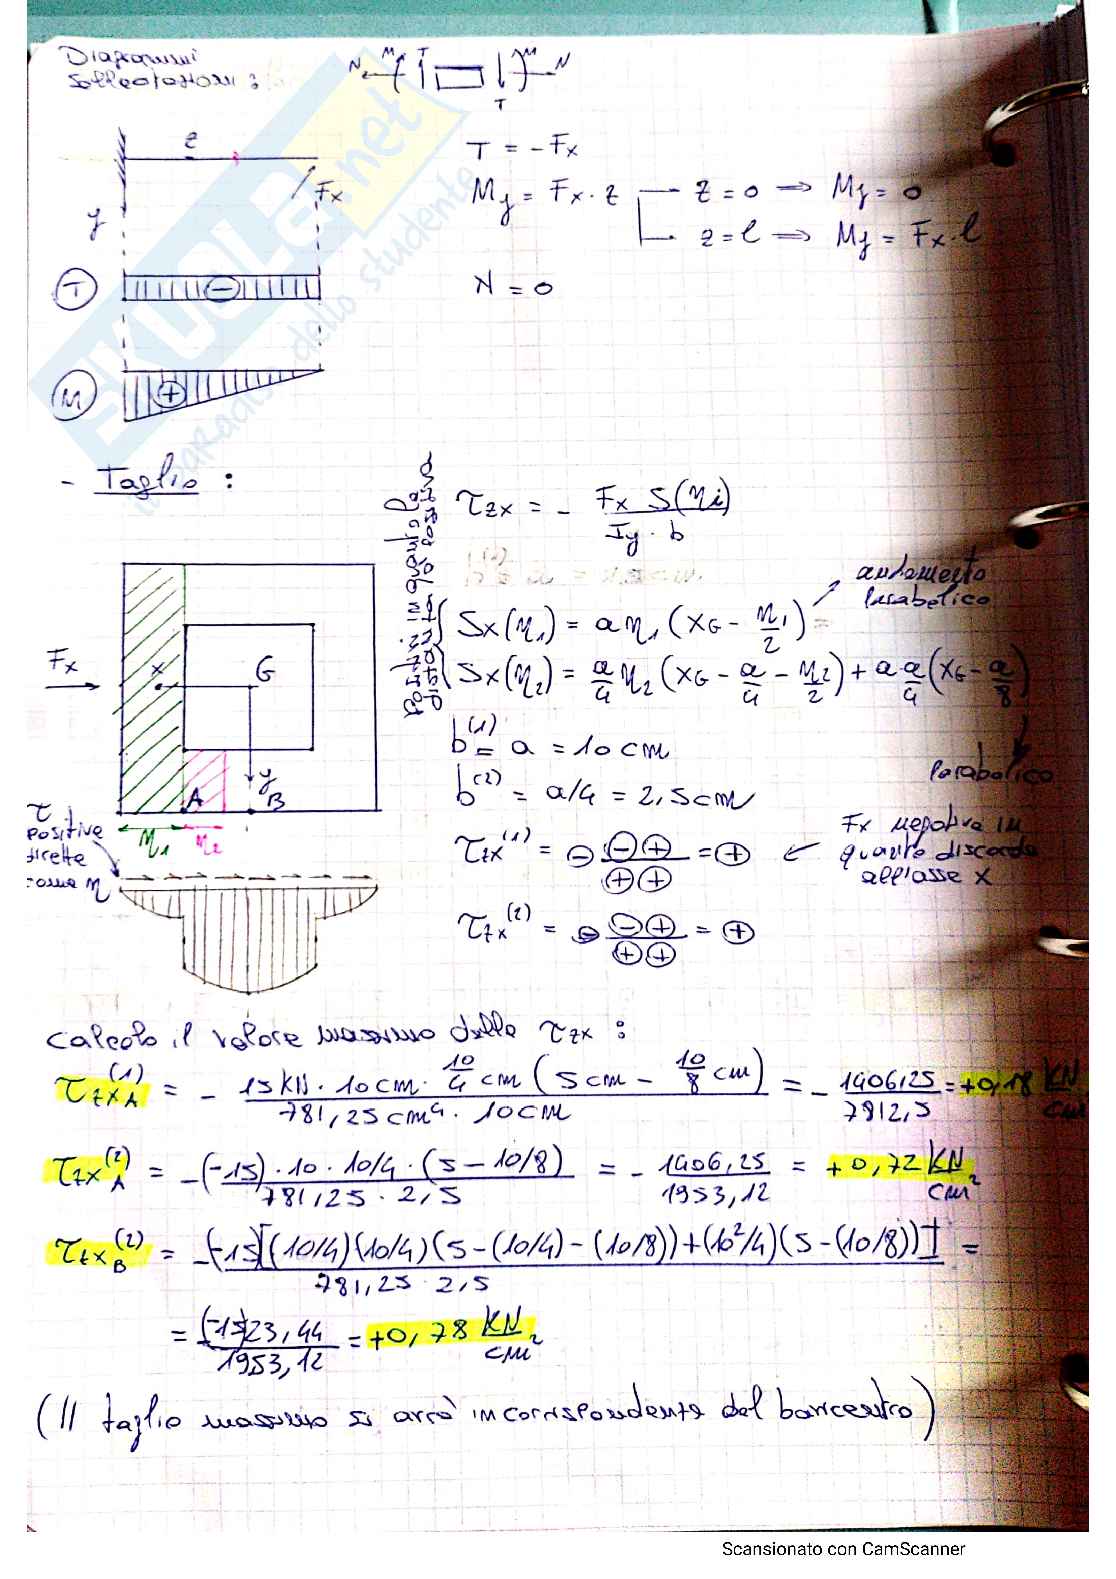 Diagrammi
Sollecitazioni :
N M T M N
T
z
Fx
y
T = - Fx
My = Fx · z — z = 0 ⇒ My = 0
z = l ⇒ My = Fx · l
N = 0
T
M
SKUOLA.net
il paradiso dello studente
- Taglio :
τzx = - Fx S(ηi) / Iy · b
andamento
parabolico
Sx(η1) = a η1 (xG - η1/2) =
Sx(η2) = a/4 η2 (xG - a/4 - η2/2) + a a/4 (xG - a/8)
parabolico
b(1) = a = 10 cm
b(2) = a/4 = 2,5 cm
Fx
x
G
y
A
B
η1
η2
τ
positive
dirette
come η
τzx(1) = - (-)(+) / (+)(+) = (+)
Fx negativa in
quanto discorde
all'asse x
τzx(2) = - (-)(+) / (+)(+) = (+)
Calcolo il valore massimo delle τzx :
τzxA(1) = - 15 KN · 10 cm · 10/4 cm (5 cm - 10/8 cm) / 781,25 cm4 · 10 cm = - 1406,25 / 7812,5 = +0,18 KN/cm
τzxA(2) = -(-15) · 10 · 10/4 · (5 - 10/8) / 781,25 · 2,5 = - 1406,25 / 1953,12 = +0,72 KN/cm2
τzxB(2) = -(-15)[(10/4)(10/4)(5-(10/4)-(10/8))+(10²/4)(5-(10/8))] / 781,25 · 2,5 =
= (-1523,44 / 1953,12 = +0,78 KN/cm2
(Il taglio massimo si avrà in corrispondente del baricentro)
Scansionato con CamScanner